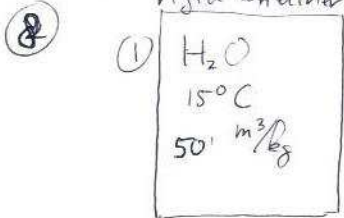 ①
H₂O
15° C
50 m³/kg